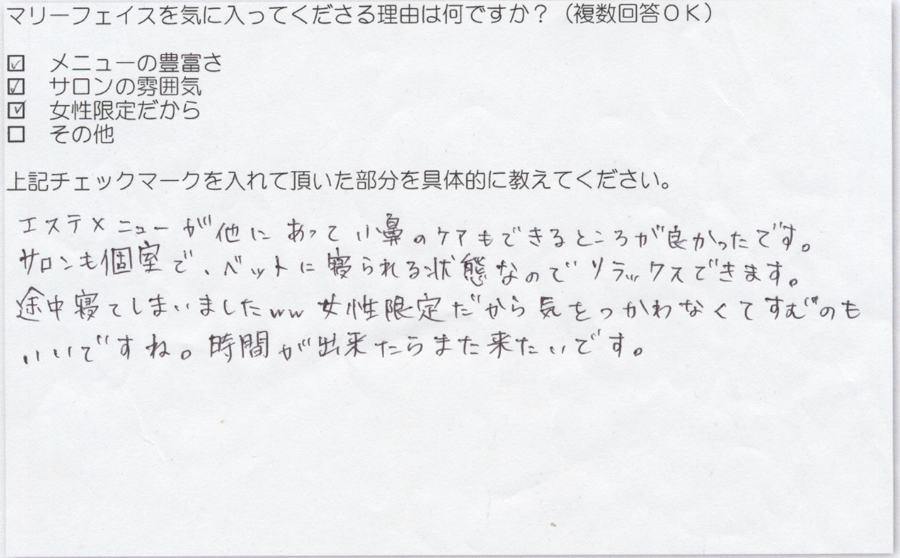 マリーフェイスを気に入ってくださる理由は何ですか？（複数回答ＯＫ）
☑ メニューの豊富さ
☑ サロンの雰囲気
☑ 女性限定だから
☐ その他
上記チェックマークを入れて頂いた部分を具体的に教えてください。
エステメニューが他にあって小鼻のケアもできるところが良かったです。
サロンも個室で、ベットに寝られる状態なのでリラックスできます。
途中寝てしまいましたww 女性限定だから気をつかわなくてすむのも
いいですね。時間が出来たらまた来たいです。